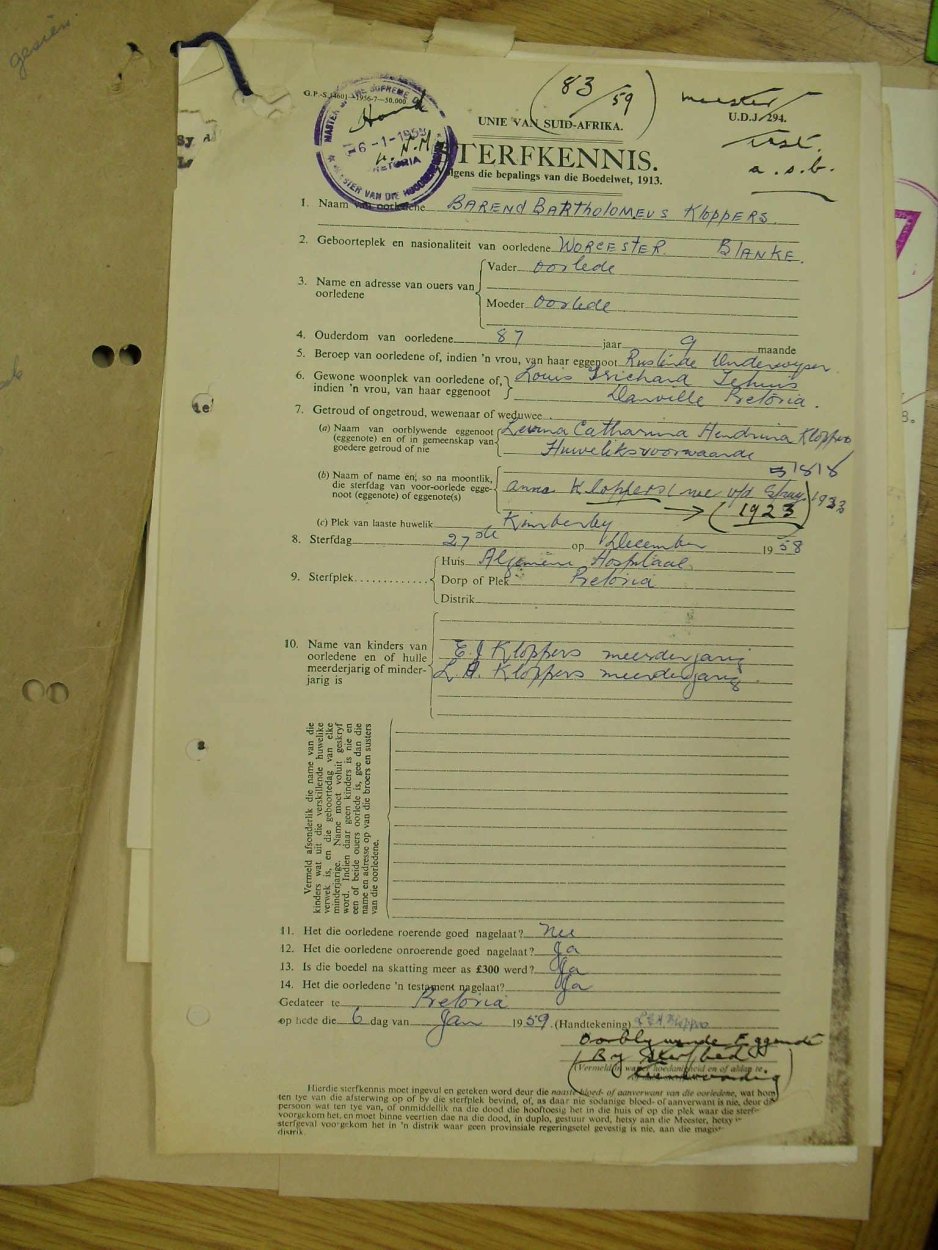 gesien
83/59
G.P.-S.14601—1956-7—50,000
meester
UNIE VAN SUID-AFRIKA.
U.D.J. 294.
MASTER OF THE SUPREME
6-1-1959
PRETORIA
MEESTER VAN DIE HOOGGEREGSHOF
STERFKENNIS.
Test.
a.s.b.
Volgens die bepalings van die Boedelwet, 1913.
1. Naam van oorledene BAREND BARTHOLOMEUS KLOPPERS.
2. Geboorteplek en nasionaliteit van oorledene WORCESTER BLANKE.
3. Name en adresse van ouers van oorledene
Vader oorlede
Moeder oorlede
4. Ouderdom van oorledene 87 jaar 9 maande
5. Beroep van oorledene of, indien 'n vrou, van haar eggenoot Rustende Onderwyser.
6. Gewone woonplek van oorledene of, Louis Trichard Tehuis
indien 'n vrou, van haar eggenoot Danville Pretoria.
7. Getroud of ongetroud, wewenaar of weduwee
(a) Naam van oorblywende eggenoot Catharina Hendrina Kloppers
(eggenote) en of in gemeenskap van
goedere getroud of nie Huweliksvoorwaarde
(b) Naam of name en, so na moontlik,
die sterfdag van voor-oorlede egge- Anna Kloppers (nee v/d
noot (eggenote) of eggenote(s) (1923)
(c) Plek van laaste huwelik Kimberley
8. Sterfdag 27ste op December 1958
9. Sterfplek
Huis Algemene Hospitaal
Dorp of Plek Pretoria
Distrik
10. Name van kinders van
oorledene en of hulle E.J. Kloppers meerderjarig
meerderjarig of minder- L.A. Kloppers meerderjarig.
jarig is
Vermeld afsonderlik die name van die
kinders wat uit die verskillende huwelike
verwek is, en die geboortedag van elke
minderjarige. Name moet voluit geskryf
word. Indien daar geen kinders is nie en
een of beide ouers oorlede is, gee dan die
name en adresse op van die broers en susters
van die oorledene.
11. Het die oorledene roerende goed nagelaat? Nee
12. Het die oorledene onroerende goed nagelaat? Ja
13. Is die boedel na skatting meer as £300 werd? Ja
14. Het die oorledene 'n testament nagelaat? Ja
Gedateer te Pretoria
op hede die 6 dag van Jan 1959. (Handtekening) Kloppers
Oorblywende Eggenote
By Sterfbed
(Vermeld in watter hoedanigheid en of al dan te
teenwoordig
Hierdie sterfkennis moet ingevul en geteken word deur die naaste bloed- of aanverwant van die oorledene, wat
ten tye van die afsterwing op of by die sterfplek bevind, of, as daar nie sodanige bloed- of aanverwant is nie, deur
persoon wat ten tye van, of onmiddellik na die dood die hooftoesig het in die huis of op die plek waar die
voorgekom het, en moet binne veertien dae na die dood, in duplo, gestuur word, hetsy aan die Meester, hetsy
sterfgeval voorgekom het in 'n distrik waar geen provinsiale regeringsetel gevestig is nie, aan die
distrik.